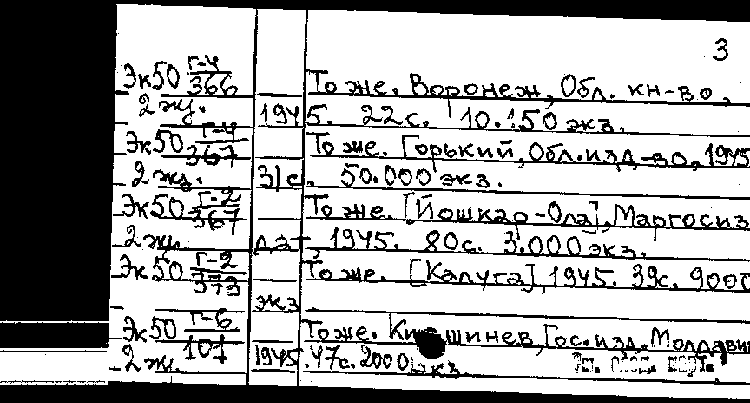 3
Эк50 Г-4/366 То же. Воронеж, Обл. кн-во,
2 экз. 1945. 22с. 10.150 экз.
Эк50 Г-4/367 То же. Горький, Обл.изд-во, 1945
2 экз. 31с. 50.000 экз.
Эк50 Г-2/367 То же. [Йошкар-Ола], Маргосиз
2 экз. дат 1945. 80с. 3.000 экз.
Эк50 Г-2/373 То же. [Калуга], 1945. 39с. 9000
экз.
Эк50 Г-6/101 То же. Кишинев, Гос.изд. Молдавии
2 экз. 1945. 47с. 2000 экз.